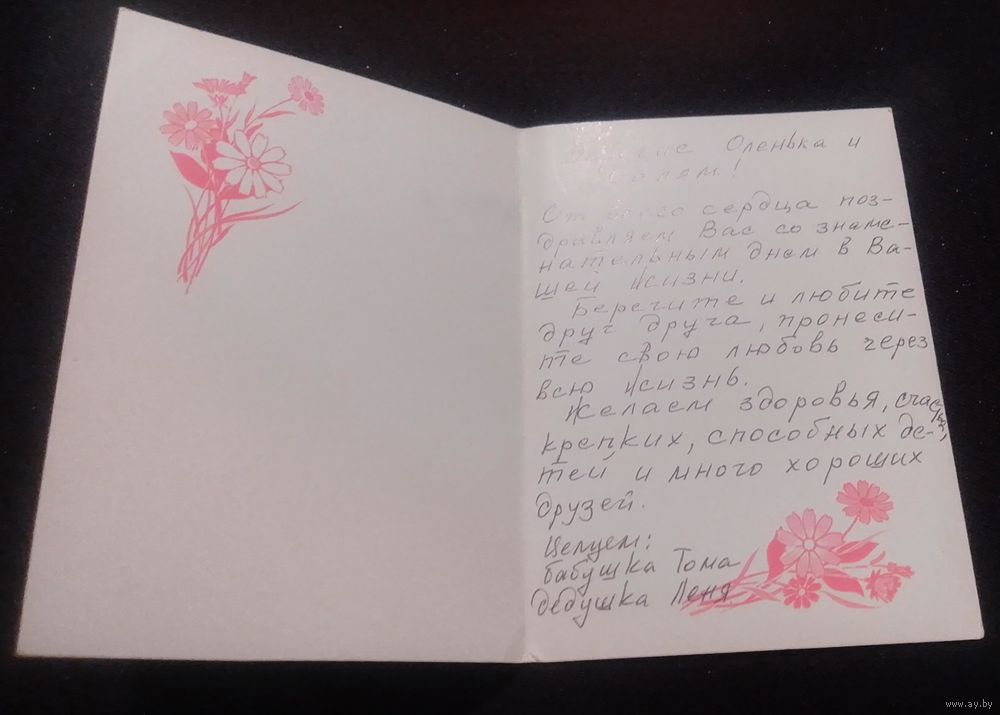 Оленька и
От всего сердца поз-
дравляем Вас со знаме-
нательным днем в Ва-
шей жизни.
Берегите и любите
друг друга, пронеси-
те свою любовь через
всю жизнь.
Желаем здоровья,
крепких, способных де-
тей, и много хороших
друзей.
Целуем:
бабушка Тома
дедушка Леня
www.ay.by